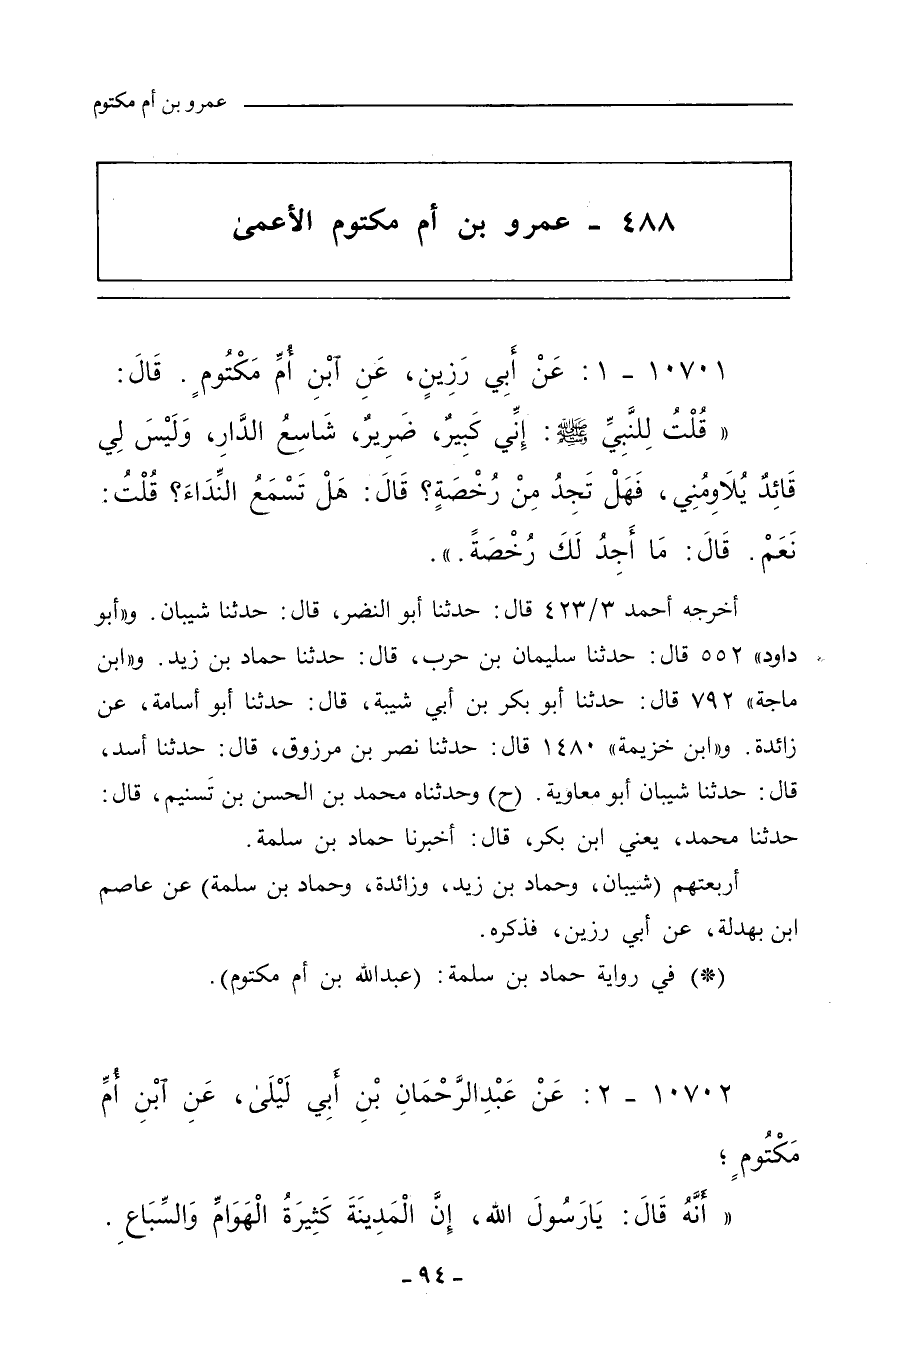 عمرو بن أم مكتوم
٤٨٨ - عمرو بن أم مكتوم الأعمىٰ
١٠٧٠١ - ١: عَنْ أَبِي رَزِينٍ، عَنِ ٱبْنِ أُمِّ مَكْتُومٍ. قَالَ:
« قُلْتُ لِلنَّبِيِّ ﷺ: إِنِّي كَبِيرٌ، ضَرِيرٌ، شَاسِعُ الدَّارِ، وَلَيْسَ لِي
قَائِدٌ يُلَاوِمُنِي، فَهَلْ تَجِدُ مِنْ رُخْصَةٍ؟ قَالَ: هَلْ تَسْمَعُ النِّدَاءَ؟ قُلْتُ:
نَعَمْ. قَالَ: مَا أَجِدُ لَكَ رُخْصَةً.».
أخرجه أحمد ٤٢٣/٣ قال: حدثنا أبو النضر، قال: حدثنا شيبان. و«أبو
داود» ٥٥٢ قال: حدثنا سليمان بن حرب، قال: حدثنا حماد بن زيد. و«ابن
ماجة» ٧٩٢ قال: حدثنا أبو بكر بن أبي شيبة، قال: حدثنا أبو أسامة، عن
زائدة. و«ابن خزيمة» ١٤٨٠ قال: حدثنا نصر بن مرزوق، قال: حدثنا أسد،
قال: حدثنا شيبان أبو معاوية. (ح) وحدثناه محمد بن الحسن بن تَسنيم، قال:
حدثنا محمد، يعني ابن بكر، قال: أخبرنا حماد بن سلمة.
أربعتهم (شيبان، وحماد بن زيد، وزائدة، وحماد بن سلمة) عن عاصم
ابن بهدلة، عن أبي رزين، فذكره.
(*) في رواية حماد بن سلمة: (عبدالله بن أم مكتوم).
١٠٧٠٢ - ٢: عَنْ عَبْدِالرَّحْمَانِ بْنِ أَبِي لَيْلَىٰ، عَنِ ٱبْنِ أُمِّ
مَكْتُومٍ؛
« أَنَّهُ قَالَ: يَارَسُولَ الله، إِنَّ الْمَدِينَةَ كَثِيرَةُ الْهَوَامِّ وَالسِّبَاعِ.
- ٩٤ -